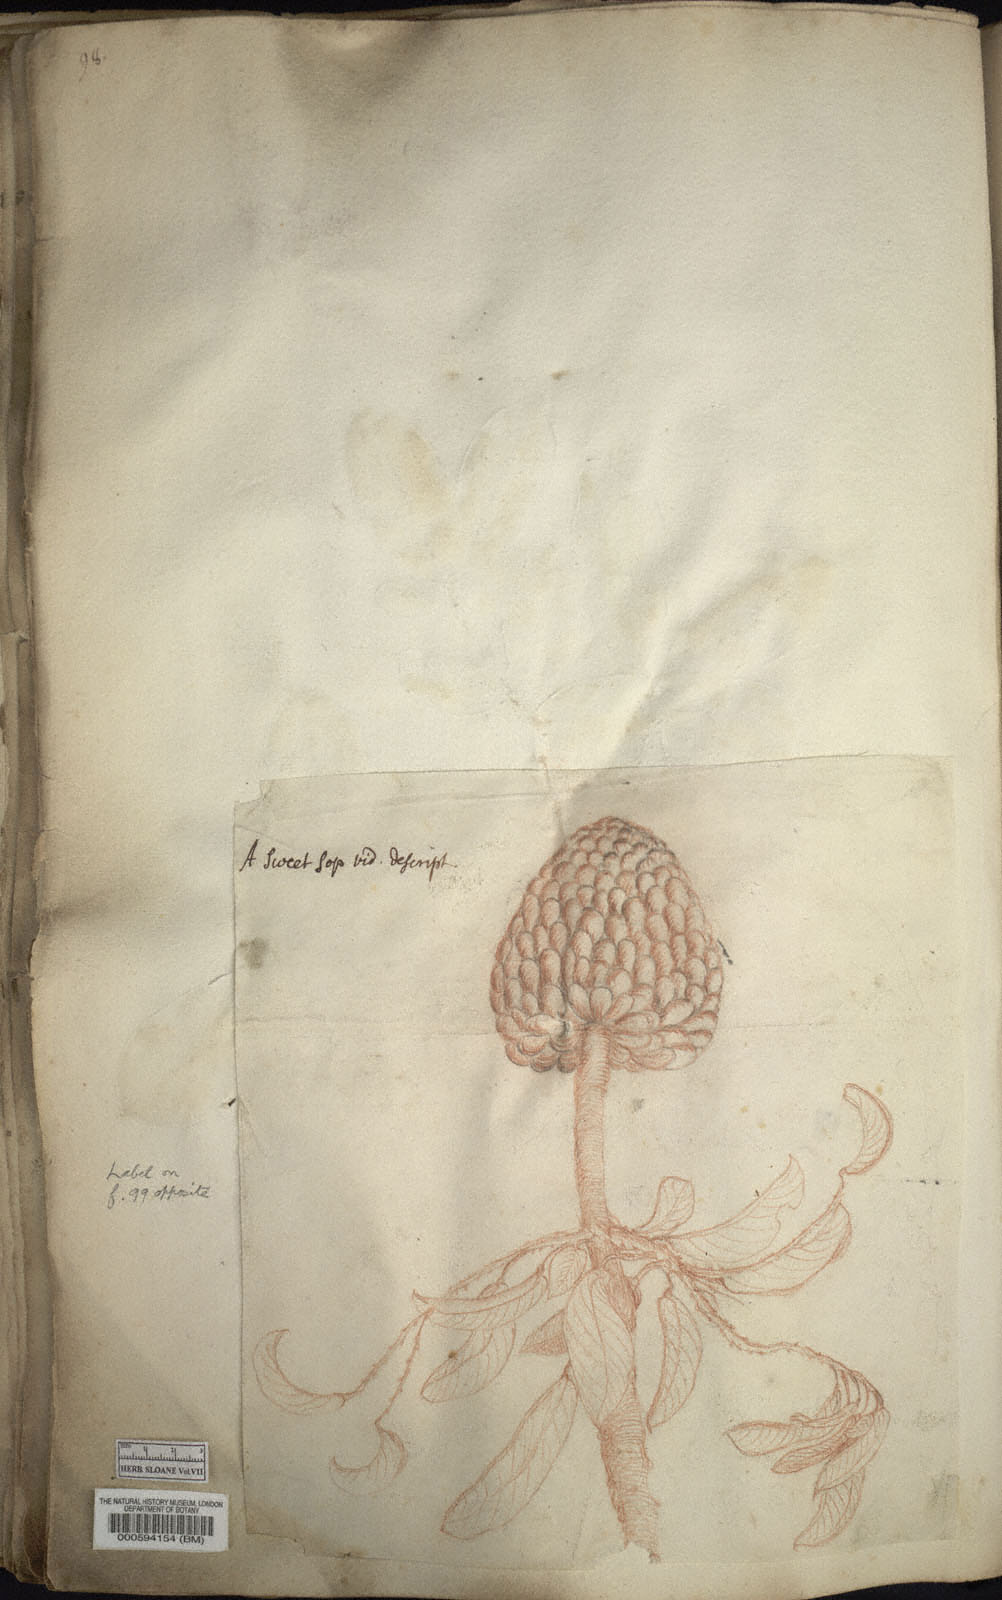 98.
A Sweet Sop vid. descript.
Label on
f. 99 opposite
HERB. SLOANE Vol. VII
THE NATURAL HISTORY MUSEUM, LONDON
DEPARTMENT OF BOTANY
000594154 (BM)